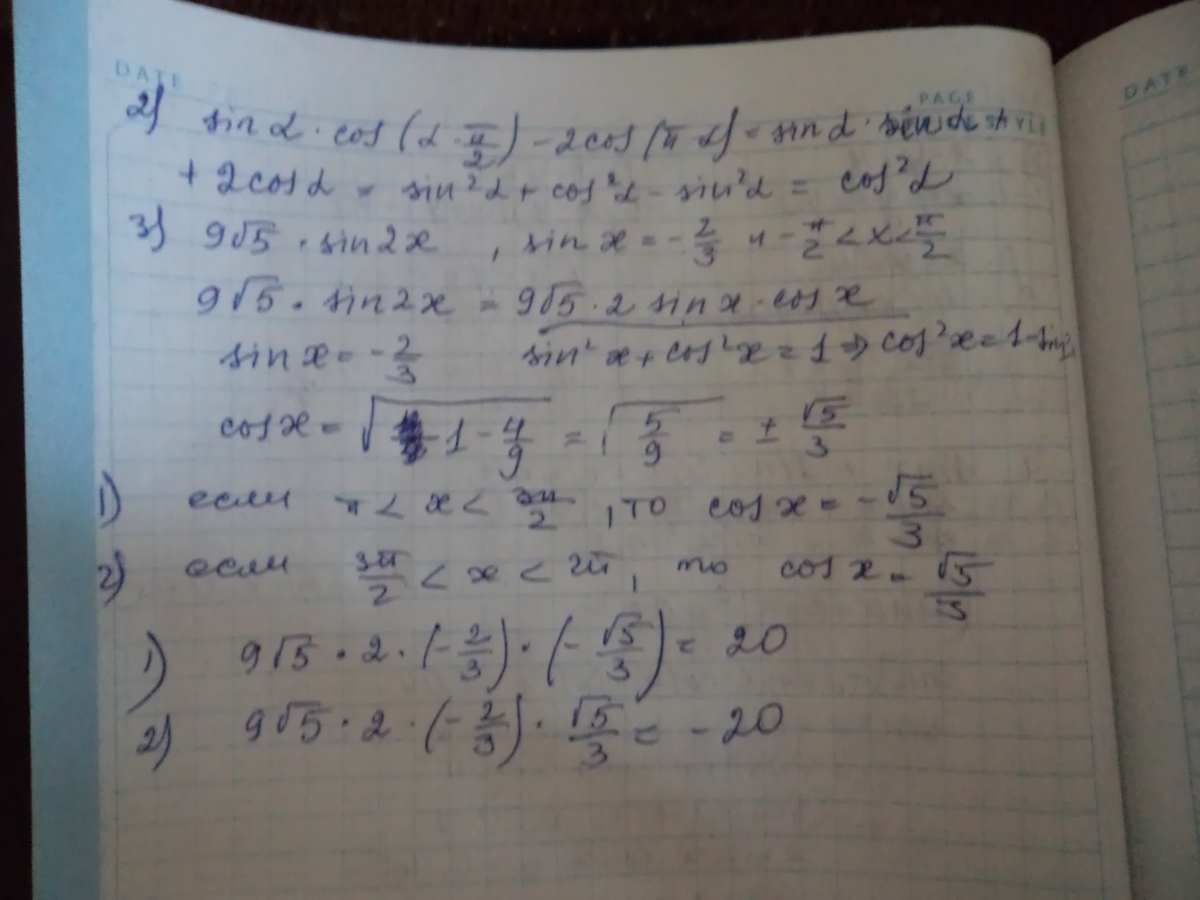 DATE
PAGE
DATE
2) sin α · cos (α · π/2) - 2cos (π α) = sin α · sin α +
+ 2cos α = sin²α + cos²α - sin²α = cos²α
3) 9√5 · sin 2x , sin x = -2/3 и -π/2 < x < π/2
9√5 · sin 2x = 9√5 · 2 sin x · cos x
sin x = -2/3 sin²x + cos²x = 1 ⇒ cos²x = 1 - sin²
cos x = √(1 - 4/9) = √(5/9) = ± √5/3
1) если π < x < 3π/2 , то cos x = - √5/3
2) если 3π/2 < x < 2π, то cos x = √5/3
1) 9√5 · 2 · (-2/3) · (-√5/3) = 20
2) 9√5 · 2 · (-2/3) · √5/3 = - 20